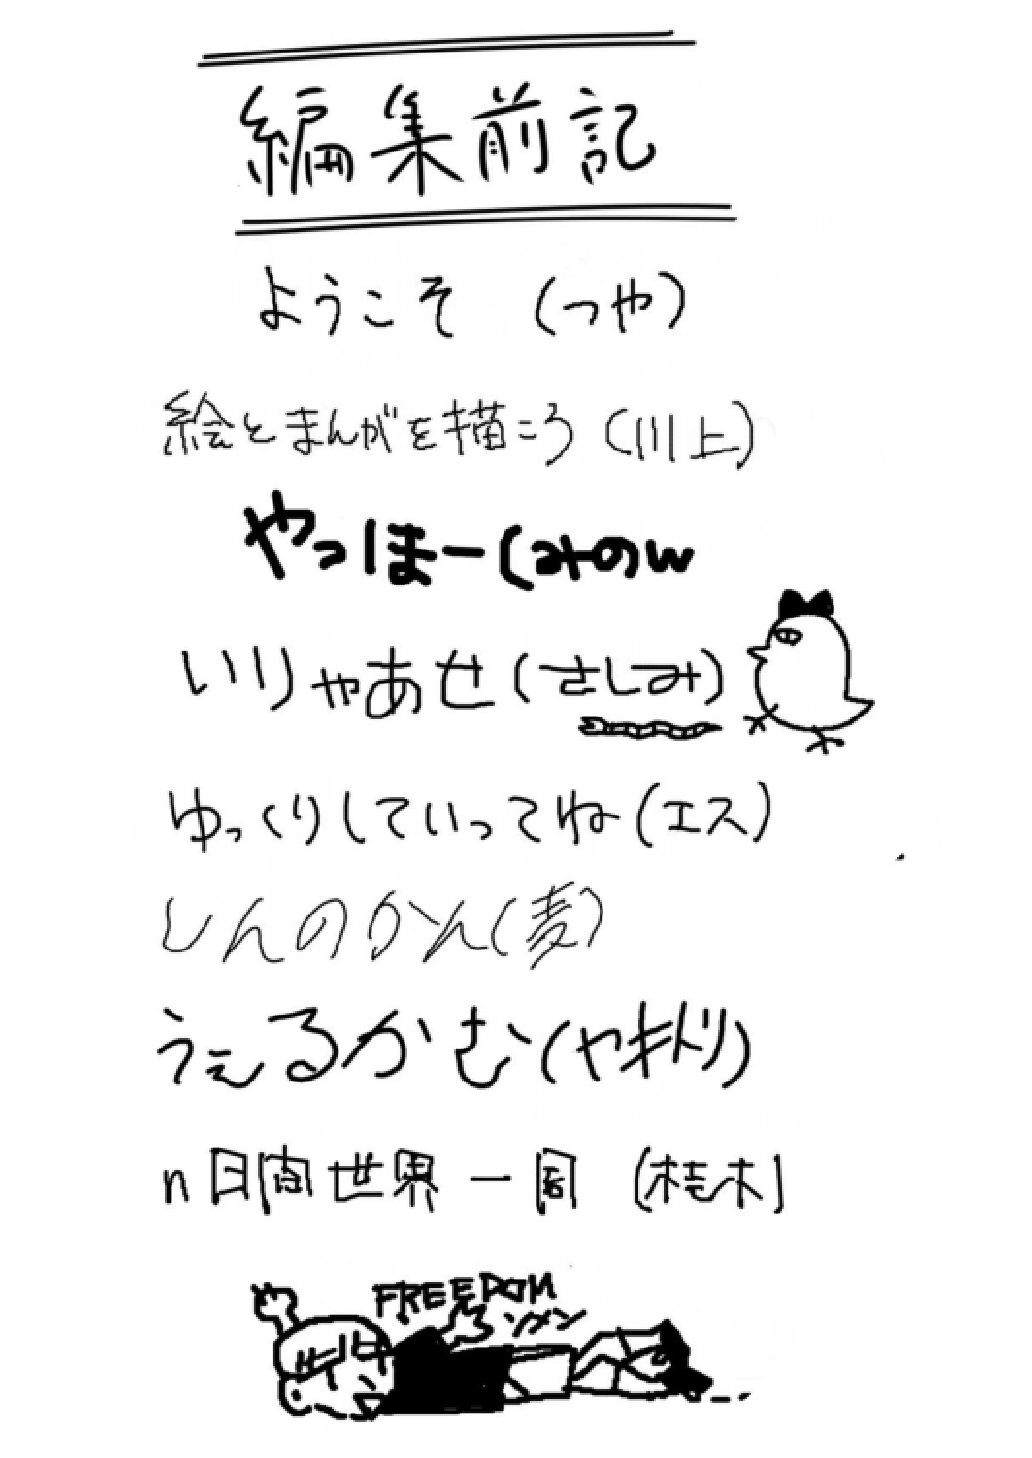 編集前記
ようこそ (つや)
絵とまんがを描こう (川上)
やっほー(みのw
いりゃあせ(さしみ)
ゆっくりしていってね(エス)
しんのかん(麦)
うぇるかむ(ヤキトリ)
n日間世界一周 (桂木)
FREEDOM
ソメン